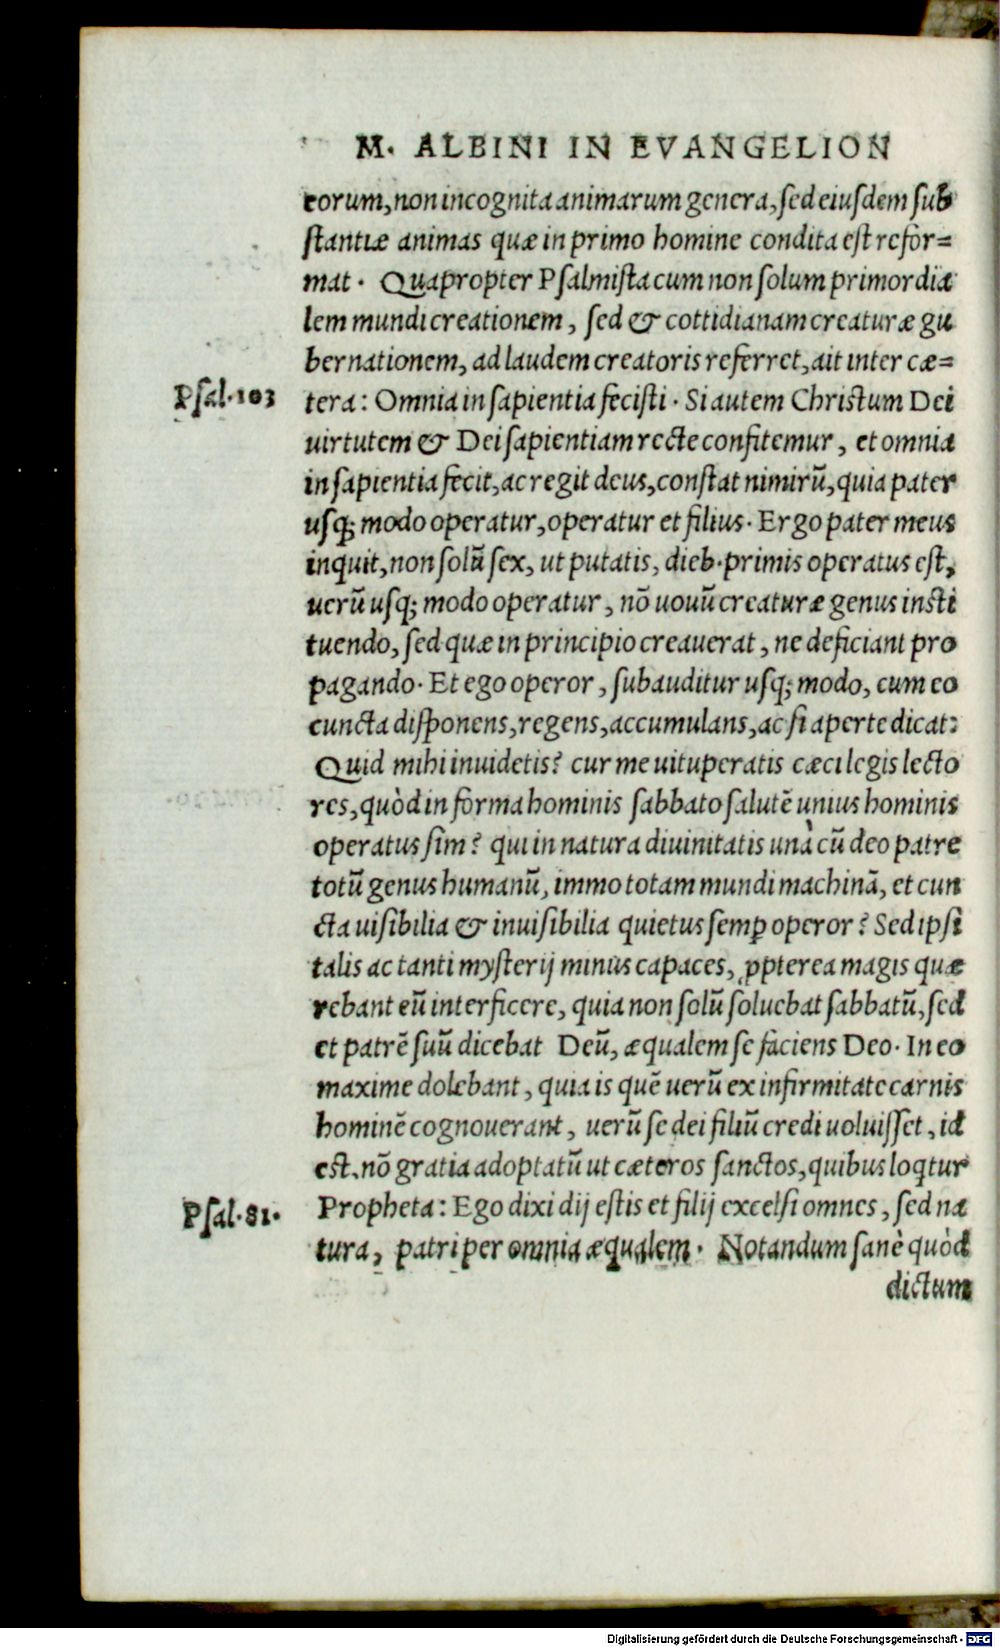 M. ALBINI IN EVANGELION
eorum, non incognita animarum genera, sed eiusdem sub
stantiæ animas quæ in primo homine condita est refor=
mat. Quapropter Psalmista cum non solum primordia
lem mundi creationem, sed & cottidianam creaturæ gu
bernationem, ad laudem creatoris referret, ait inter cæ=
Psal.103
tera: Omnia in sapientia fecisti. Si autem Christum Dei
uirtutem & Dei sapientiam recte confitemur, et omnia
in sapientia fecit, ac regit deus, constat nimirũ, quia pater
usq; modo operatur, operatur et filius. Ergo pater meus
inquit, non solũ sex, ut putatis, dieb. primis operatus est,
uerũ usq; modo operatur, nõ uouũ creaturæ genus insti
tuendo, sed quæ in principio creauerat, ne deficiant pro
pagando. Et ego operor, subauditur usq; modo, cum eo
cuncta disponens, regens, accumulans, ac si aperte dicat:
Quid mihi inuidetis? cur me uituperatis cæci legis lecto
res, quòd in forma hominis sabbato salutẽ unius hominis
operatus sim? qui in natura diuinitatis unà cũ deo patre
totũ genus humanũ, immo totam mundi machinã, et cun
cta uisibilia & inuisibilia quietus semꝑ operor? Sed ipsi
talis ac tanti mysterij minus capaces, ꝓpterea magis quæ
rebant eũ interficere, quia non solũ soluebat sabbatũ, sed
et patrẽ suũ dicebat Deũ, æqualem se faciens Deo. In eo
maxime dolebant, quia is quẽ uerũ ex infirmitate carnis
hominẽ cognouerant, uerũ se dei filiũ credi uoluisset, id
est, nõ gratia adoptatũ ut cæteros sanctos, quibus loq̃tur
Psal.81.
Propheta: Ego dixi dij estis et filij excelsi omnes, sed na
tura, patri per omnia æqualem. Notandum sanè quòd
dictum
Digitalisierung gefördert durch die Deutsche Forschungsgemeinschaft - DFG